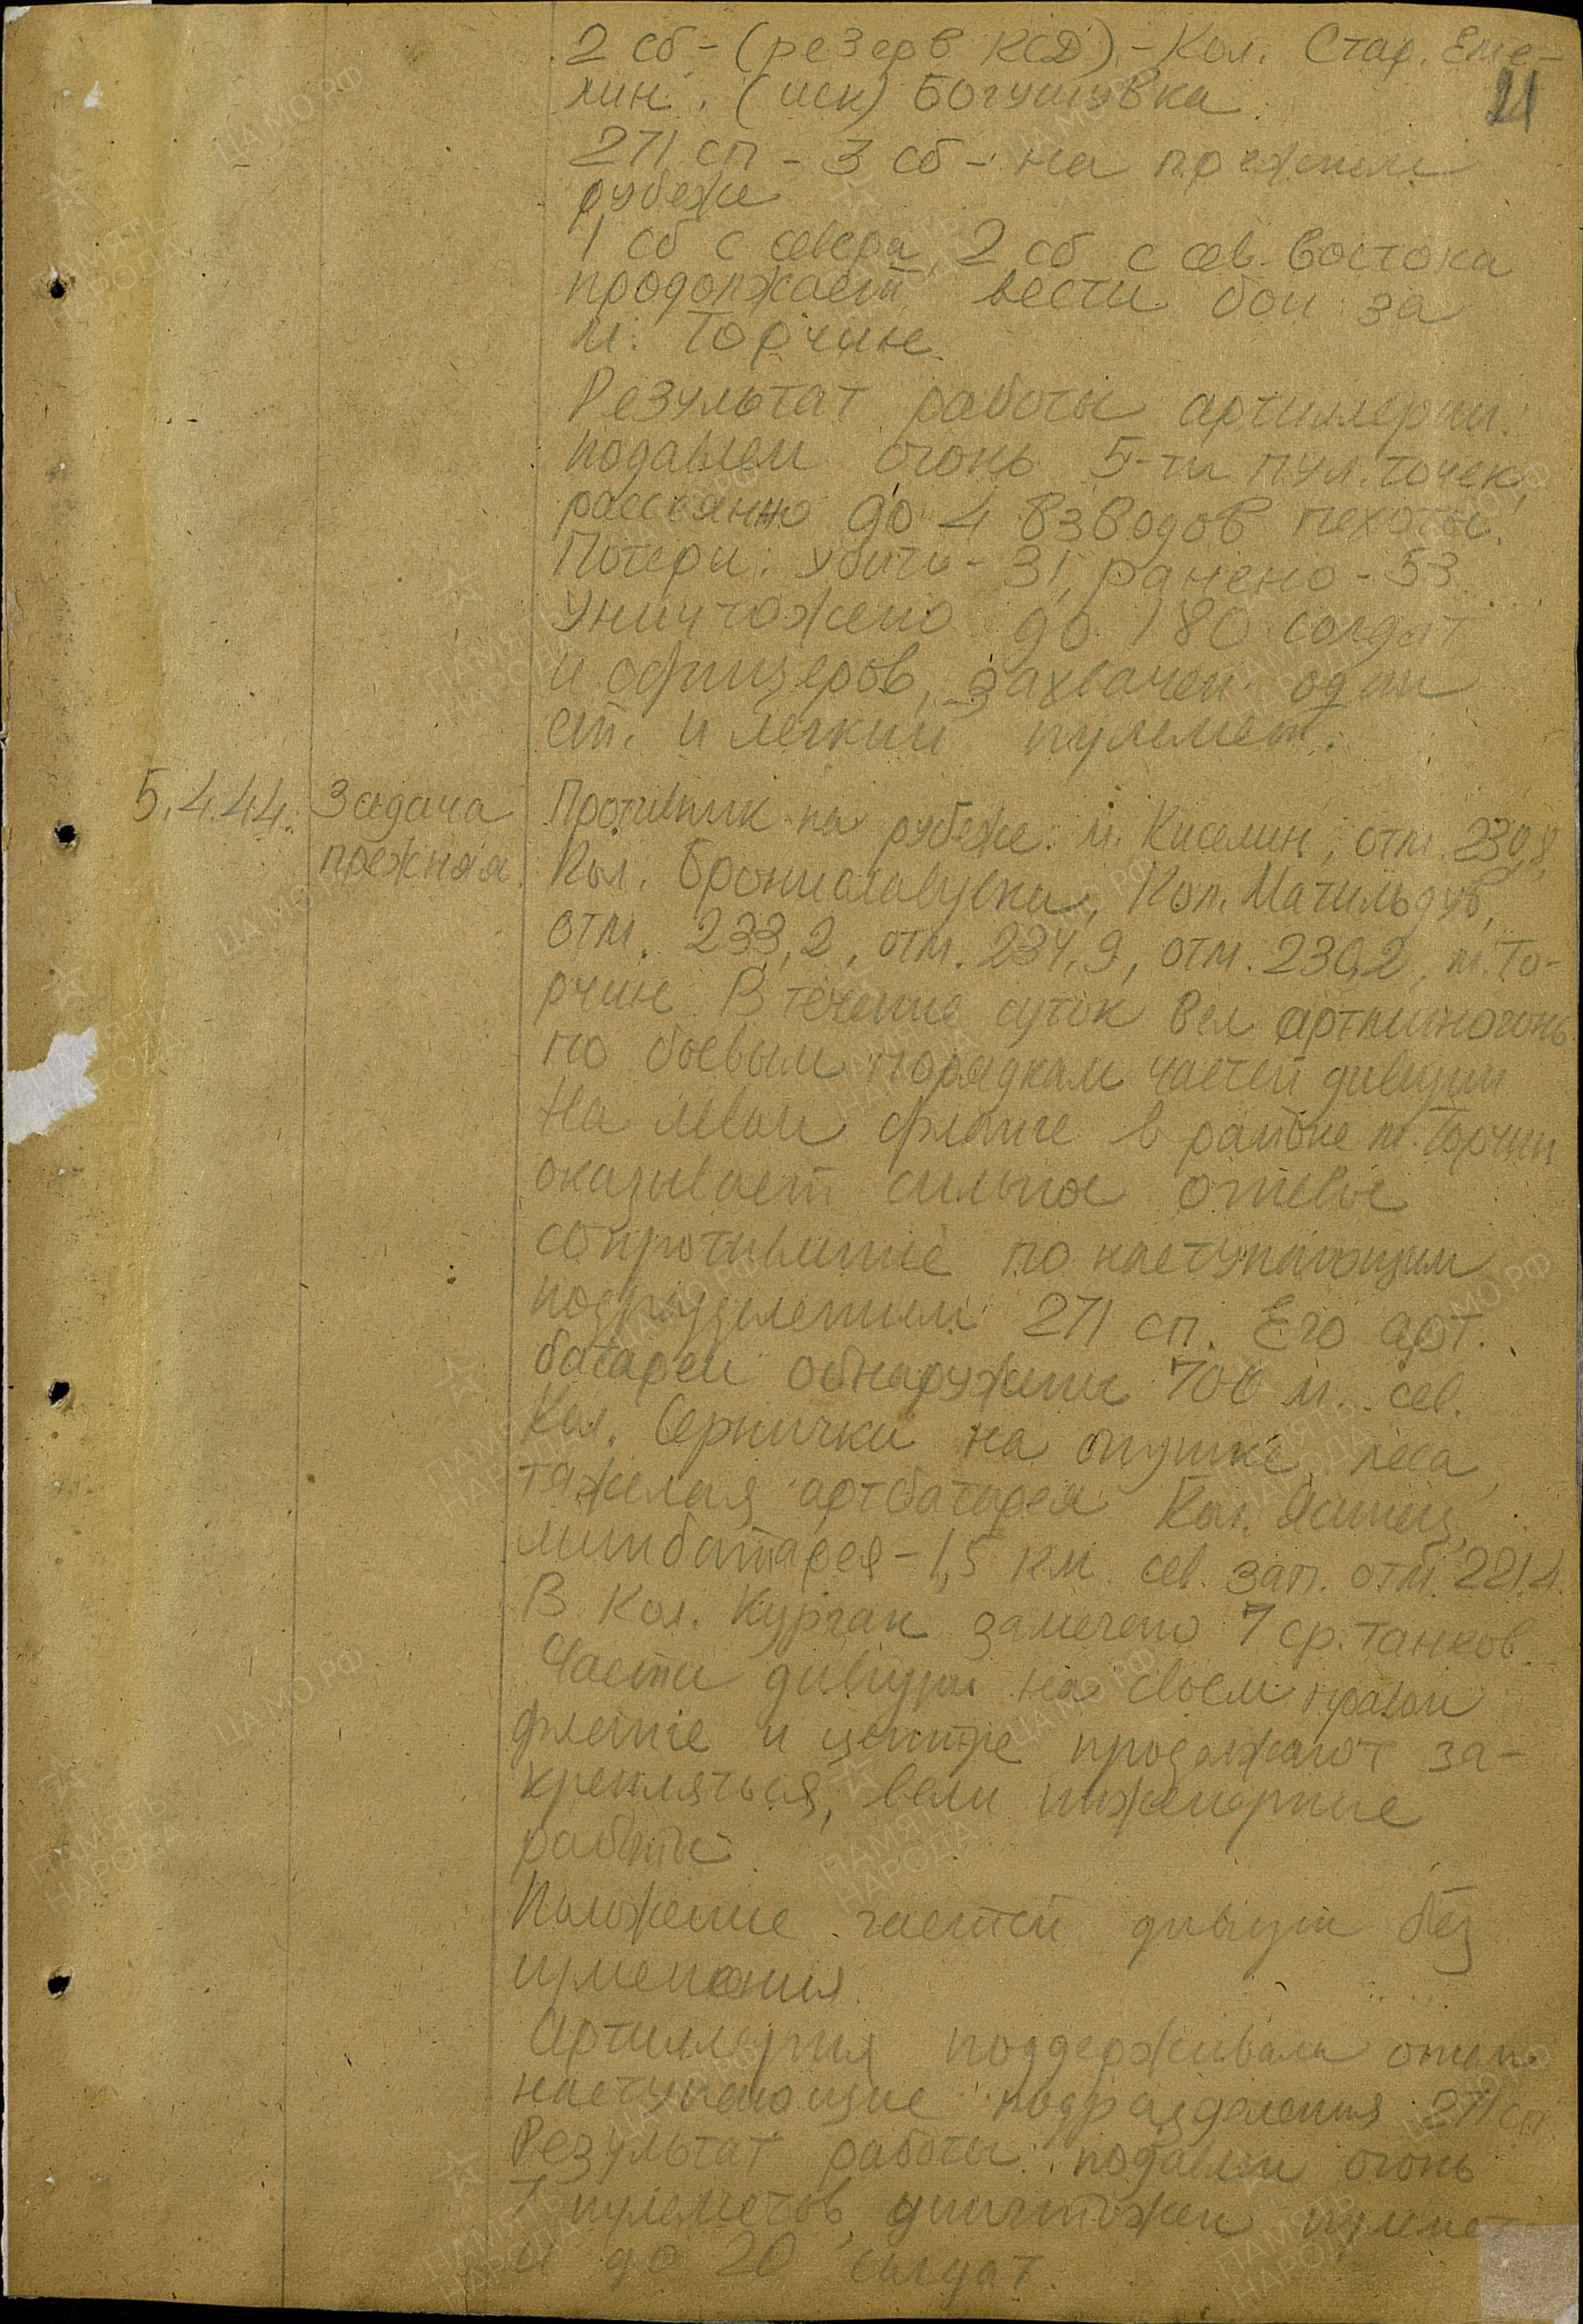 2 сб - (резерв КСД) - Кол. Стар. Еме-
лин. (иск) Богушувка
21
271 сп - 3 сб - на прежнем
рубеже
1 сб с севера, 2 сб с сев. востока
продолжает вести бои за
м. Торчин.
Результат работы артиллерии:
подавлен огонь 5-ти пул. точек,
рассеянно до 4 взводов пехоты.
Потери: убито - 31, ранено - 53.
Уничтожено до 180 солдат
и офицеров, захвачен один
ст. и легкий пулемет.
5.4.44. Задача Противник на рубеже: м. Киселин, отм. 230,8,
прежняя. Кол. Брониславувка, Кол. Матильдув,
отм. 233,2, отм. 234,9, отм. 230,2, м. То-
рчин. В течение суток вел артминогонь
по боевым порядкам частей дивизии
На левом фланге в районе м. Торчин
оказывает сильное огневое
сопротивление по наступающим
подразделениям 271 сп. Его арт.
батареи обнаружены 700 м. сев.
Кол. Сернички на опушке леса,
тяжелая артбатарея Кол.
минбатарея - 1,5 км. сев. зап. отм. 221,4.
В Кол. Курган замечено 7 ср. танков.
Части дивизии на своем правом
фланге и центре продолжают за-
крепляться, вели инженерные
работы
Положение частей дивизии без
изменения.
Артиллерия поддерживала огнем
наступающие подразделения 271 сп
Результат работы: подавлен огонь
7 пулеметов, уничтожен пулемет
и до 20 солдат.
ПАМЯТЬ НАРОДА
ЦА МО РФ